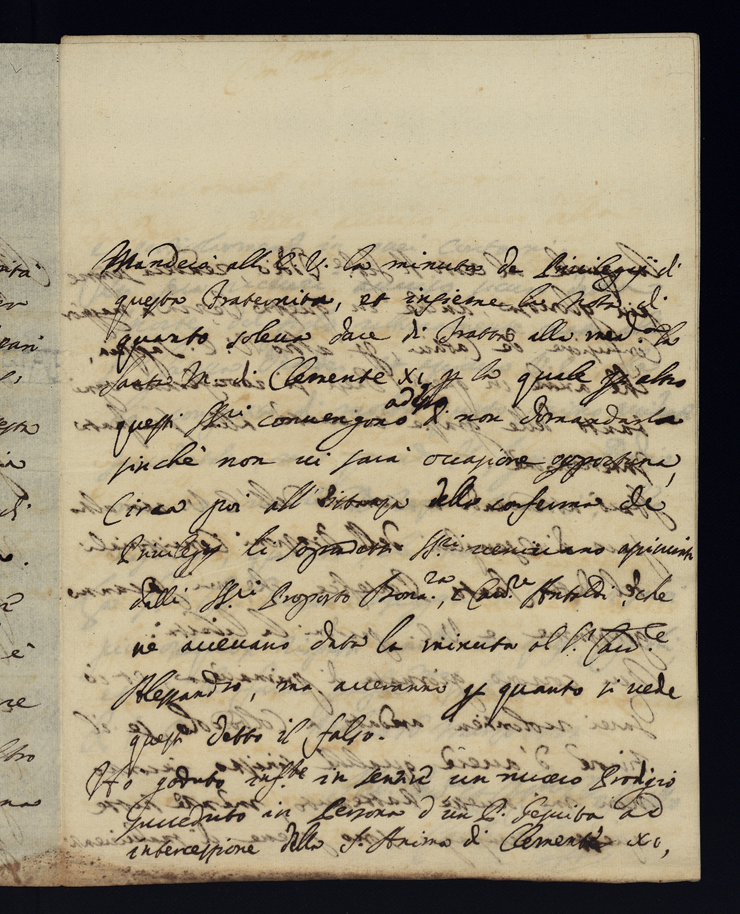 Manderà alla P. V. la minuta de Privilegij di
questa Fraternita, et insieme la nota di
quanto soleva dare di Fratta alla med.ma la
Santa M. di Clemente XI, p la quale p altro
questi SS.ri convengono adesso di non domandarla
finchè non vi sarà occasione opportuna,
Circa poi all'istanza della conferma de
Privilegij li sopradetti SS.ri venivano
dalli SS.ri Proposto Bona.ra, e Cav.re Antaldi, che
nè avevano data la minuta al S.r Card.le
Alessandro, ma averanno p quanto si vede
questi detto il falso.
Ho goduto inf.te in sentire un nuovo Prodigio
succeduto in Persona d'un P. Gesuita ad
intercessione della S. Anima di Clemente XI,